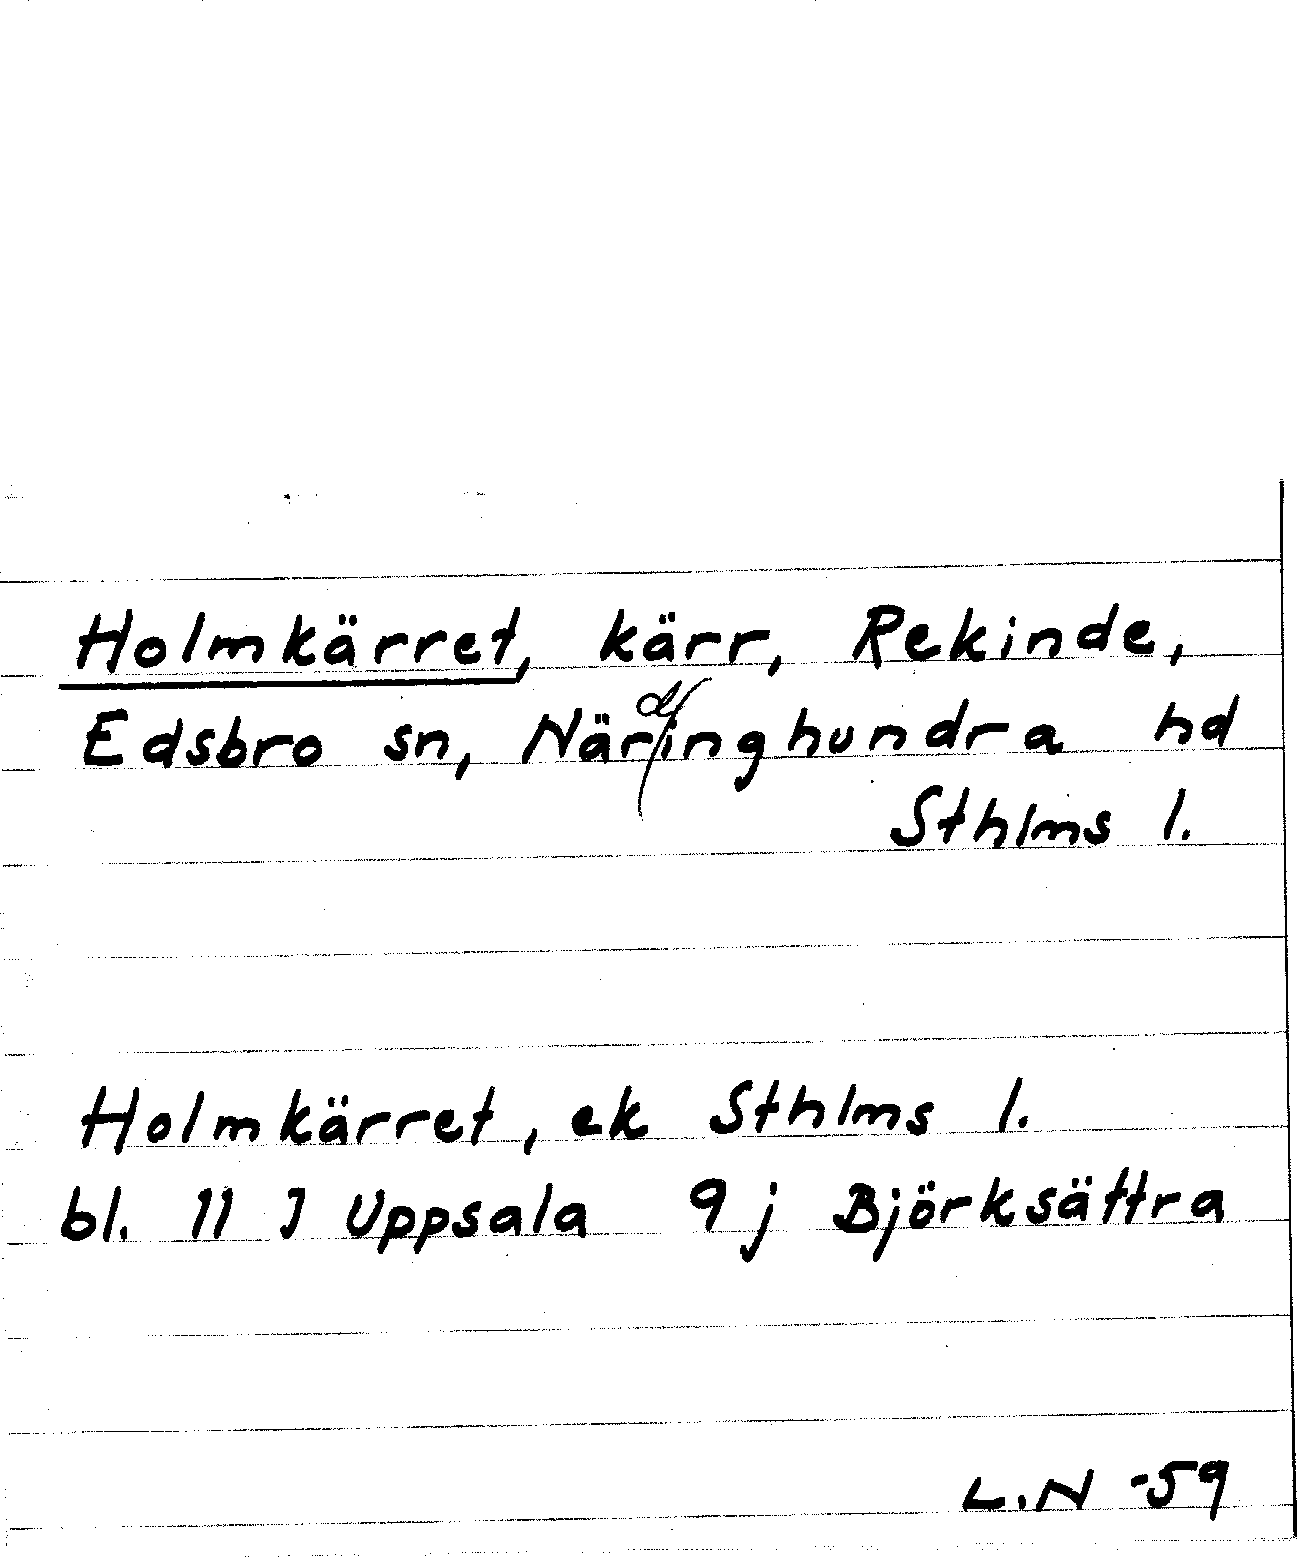 Holmkärret, kärr, Rekinde,
Edsbro sn, Närdinghundra hd
Sthlms l.
Holmkärret, ek Sthlms l.
bl. 11 J Uppsala 9 j Björksättra
L.N -59